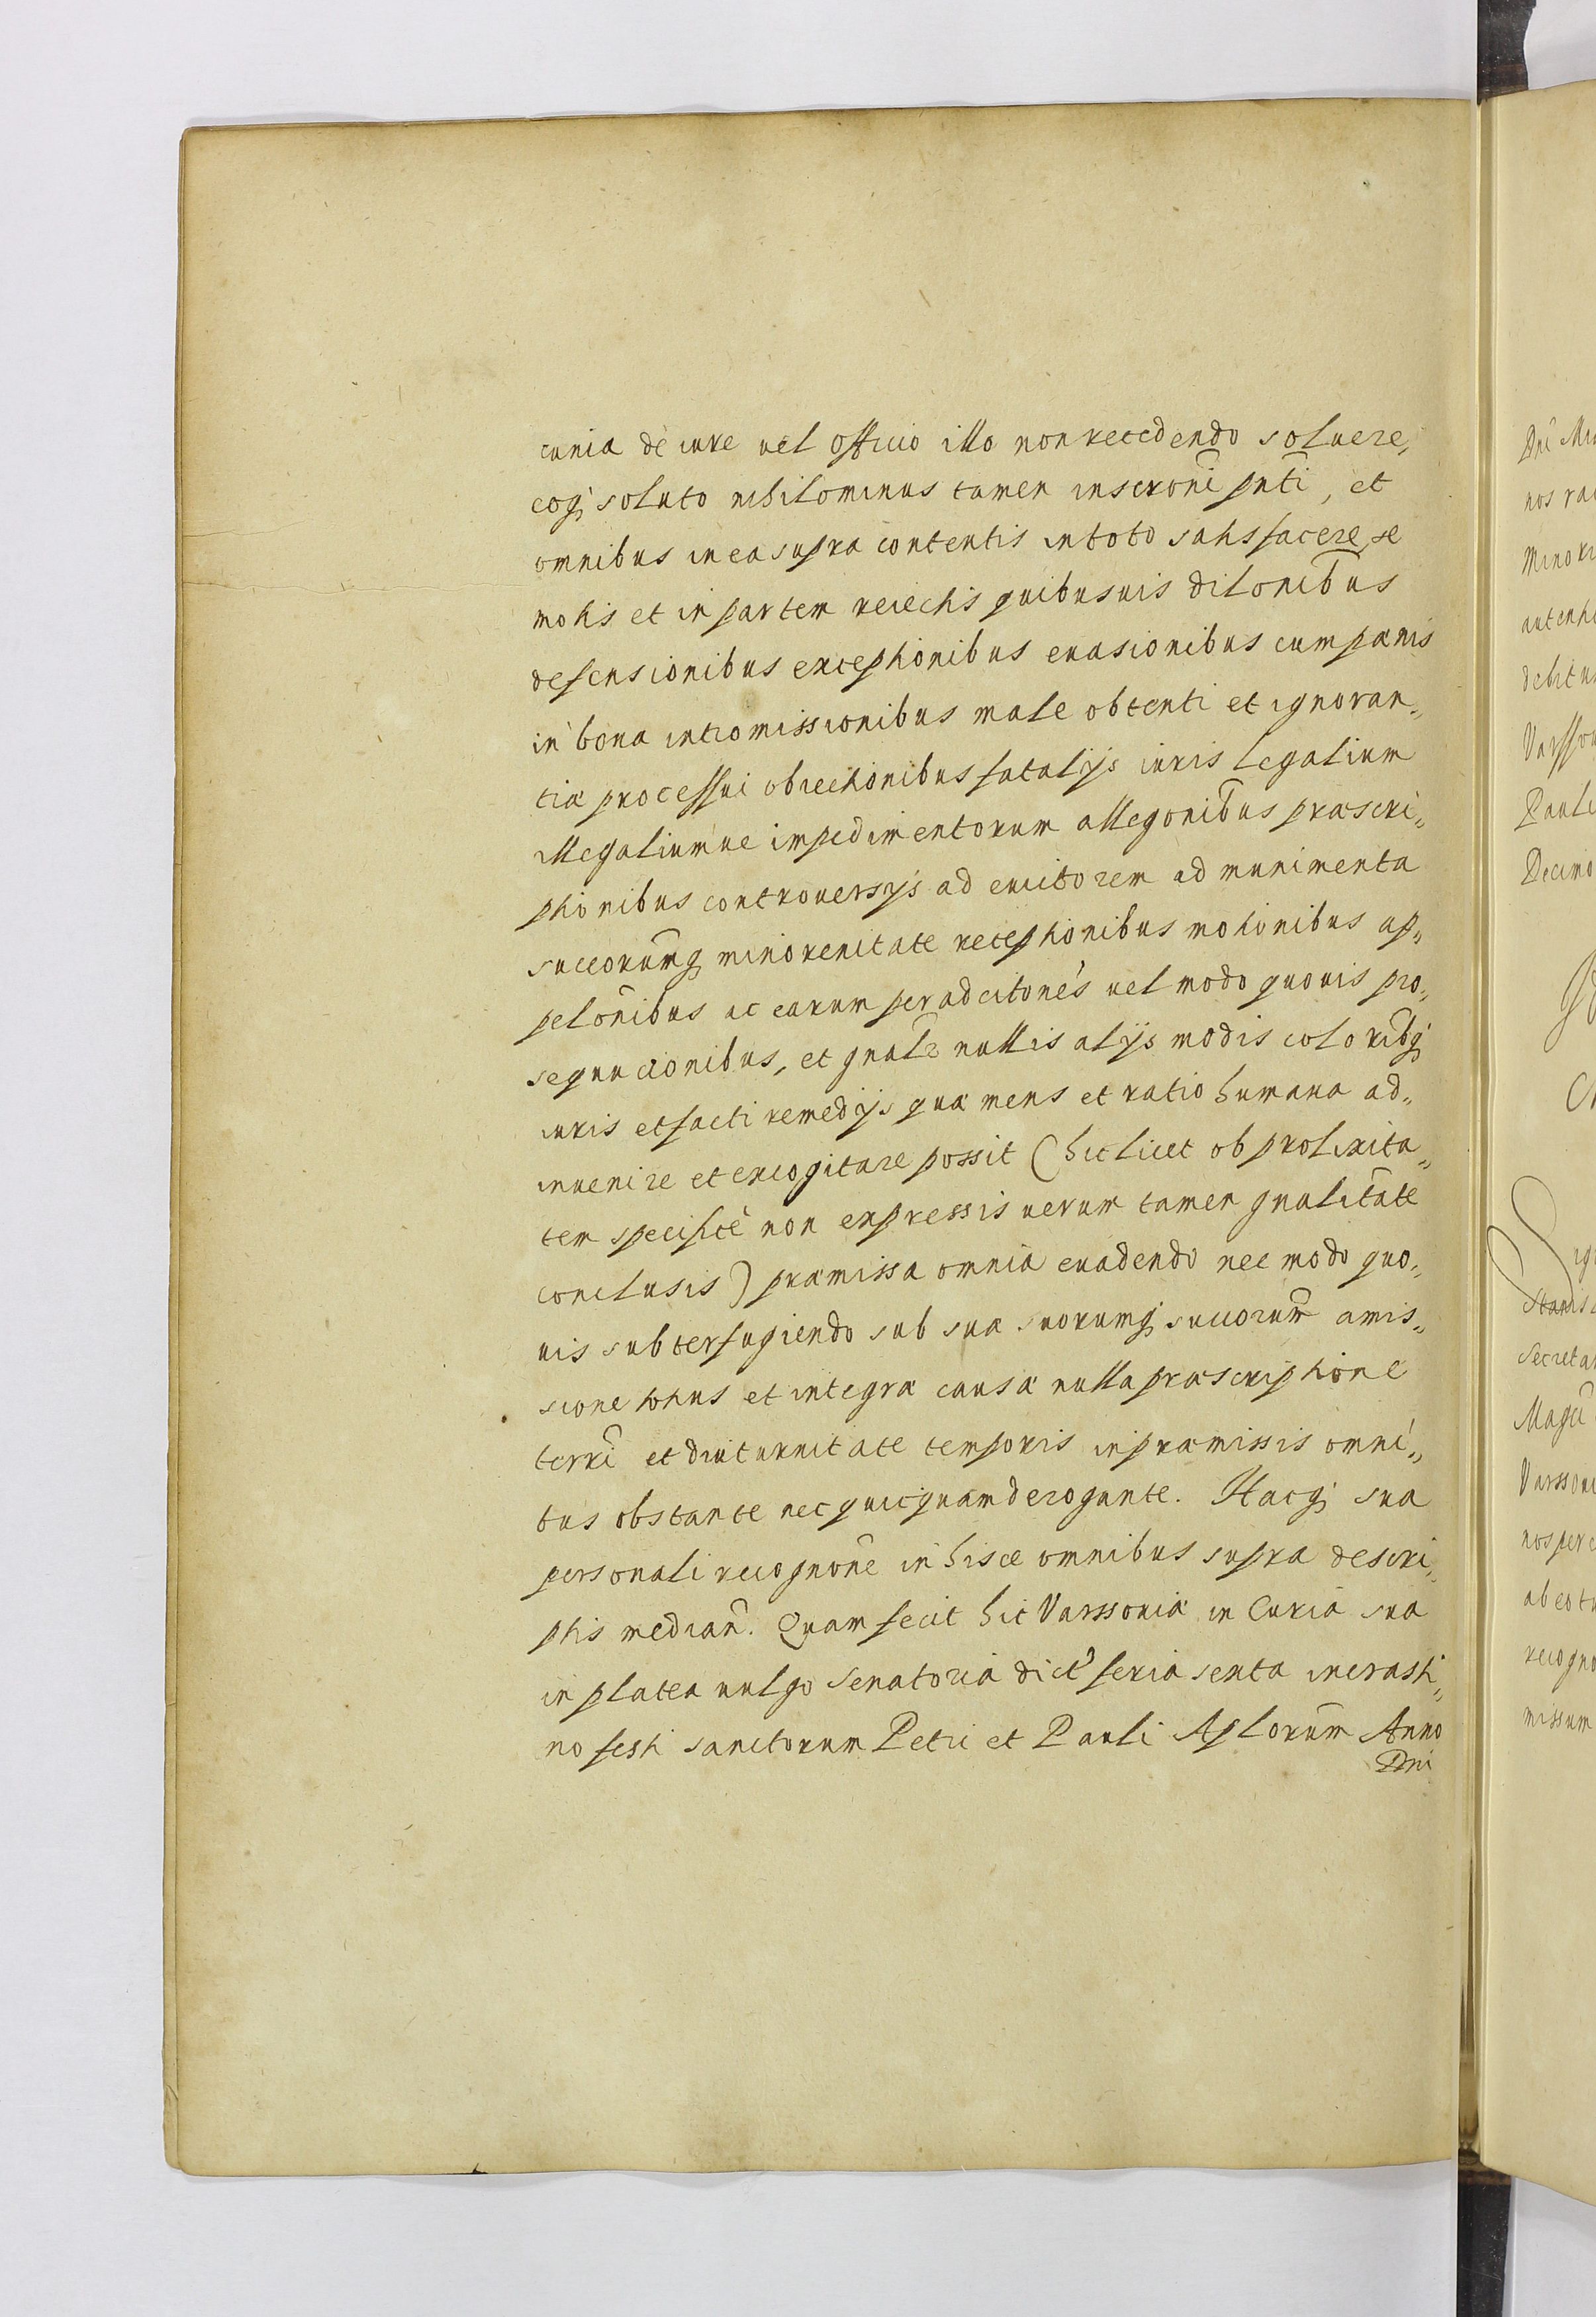 cunia de iure uel officio illo non recedendo soluere,
eoq; soluto nihilominus tamen inscroni pnti, et
omnibus in ea supra contentis in toto satisfacere, se
motis et in partem reiectis quibusuis dilonibus
defensionibus exceptionibus euasionibus cum pænis
in bona intromissionibus male obtenti et ignoran„
tiæ processui obiectionibus fatalijs iuris legalium
illegaliumue impedimentorum allegonibus præscri„
ptionibus controuersijs ad euictorem ad munimenta
succorumq; minorenitate receptionibus motionibus ap„
pelonibus ac earum per adcitones uel modo quouis pro„
sequucionibus, et gnalr nullis alijs modis coloribq;
iuris et facti remedijs quæ mens et ratio humana ad„
inuenire et excogitare possit (hic licet ob prolixita„
tem specifice non expressis uerum tamen gnalitate
conclusis) præmissa omnia euadendo nec modo quo„
uis subterfugiendo sub sua suorumq; succorum amis„
sione totius et integræ causæ nulla præscriptione
terri et diuturnitate temporis in præmissis omni„
bus obstante nec quicquam derogante. Hacq; sua
personali recognone in hisce omnibus supra descri„
ptis median. Quam fecit hic Varssouiæ in Curia sua
in platea uulgo Senatoria dict feria sexta in crasti„
no festi sanctorum Petri et Pauli Aplorum Anno
Dni
Dni
nos
autent
Pauli
Decimo
Stanis
Secretar
Magci
nos per
ab eo
missum